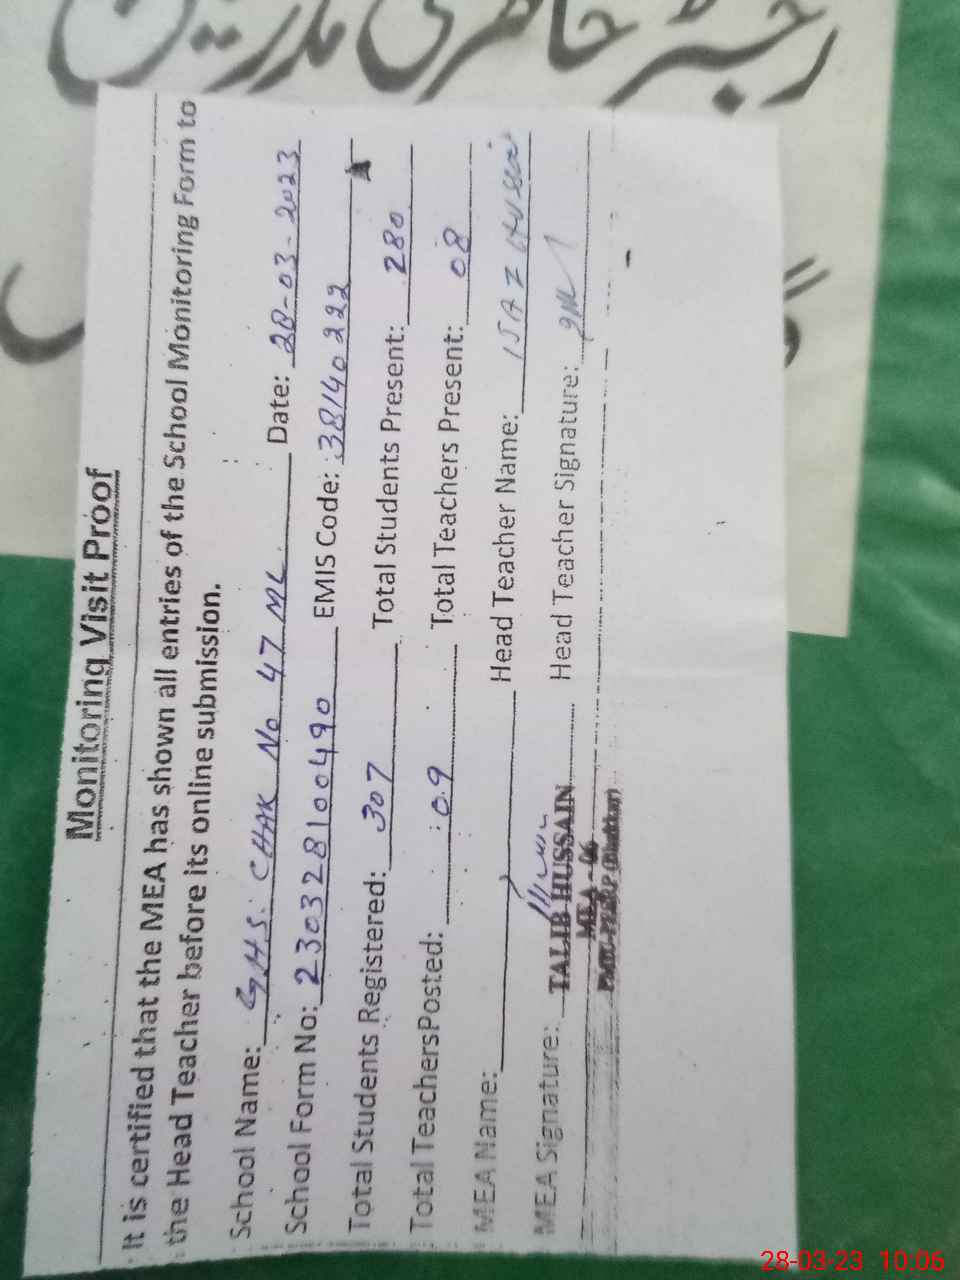 رجسٹر حاضری مدرسین
Monitoring Visit Proof
It is certified that the MEA has shown all entries of the School Monitoring Form to
the Head Teacher before its online submission.
School Name: G.H.S. CHAK No 47 ML Date: 28-03-2023
School Form No: 230328100490 EMIS Code: 38140222
Total Students Registered: 307 Total Students Present: 280
Total Teachers Posted: 09 Total Teachers Present: 08
MEA Name: Head Teacher Name:
MEA Signature: Head Teacher Signature:
TALIB HUSSAIN
MEA-06
28-03-23 10:06